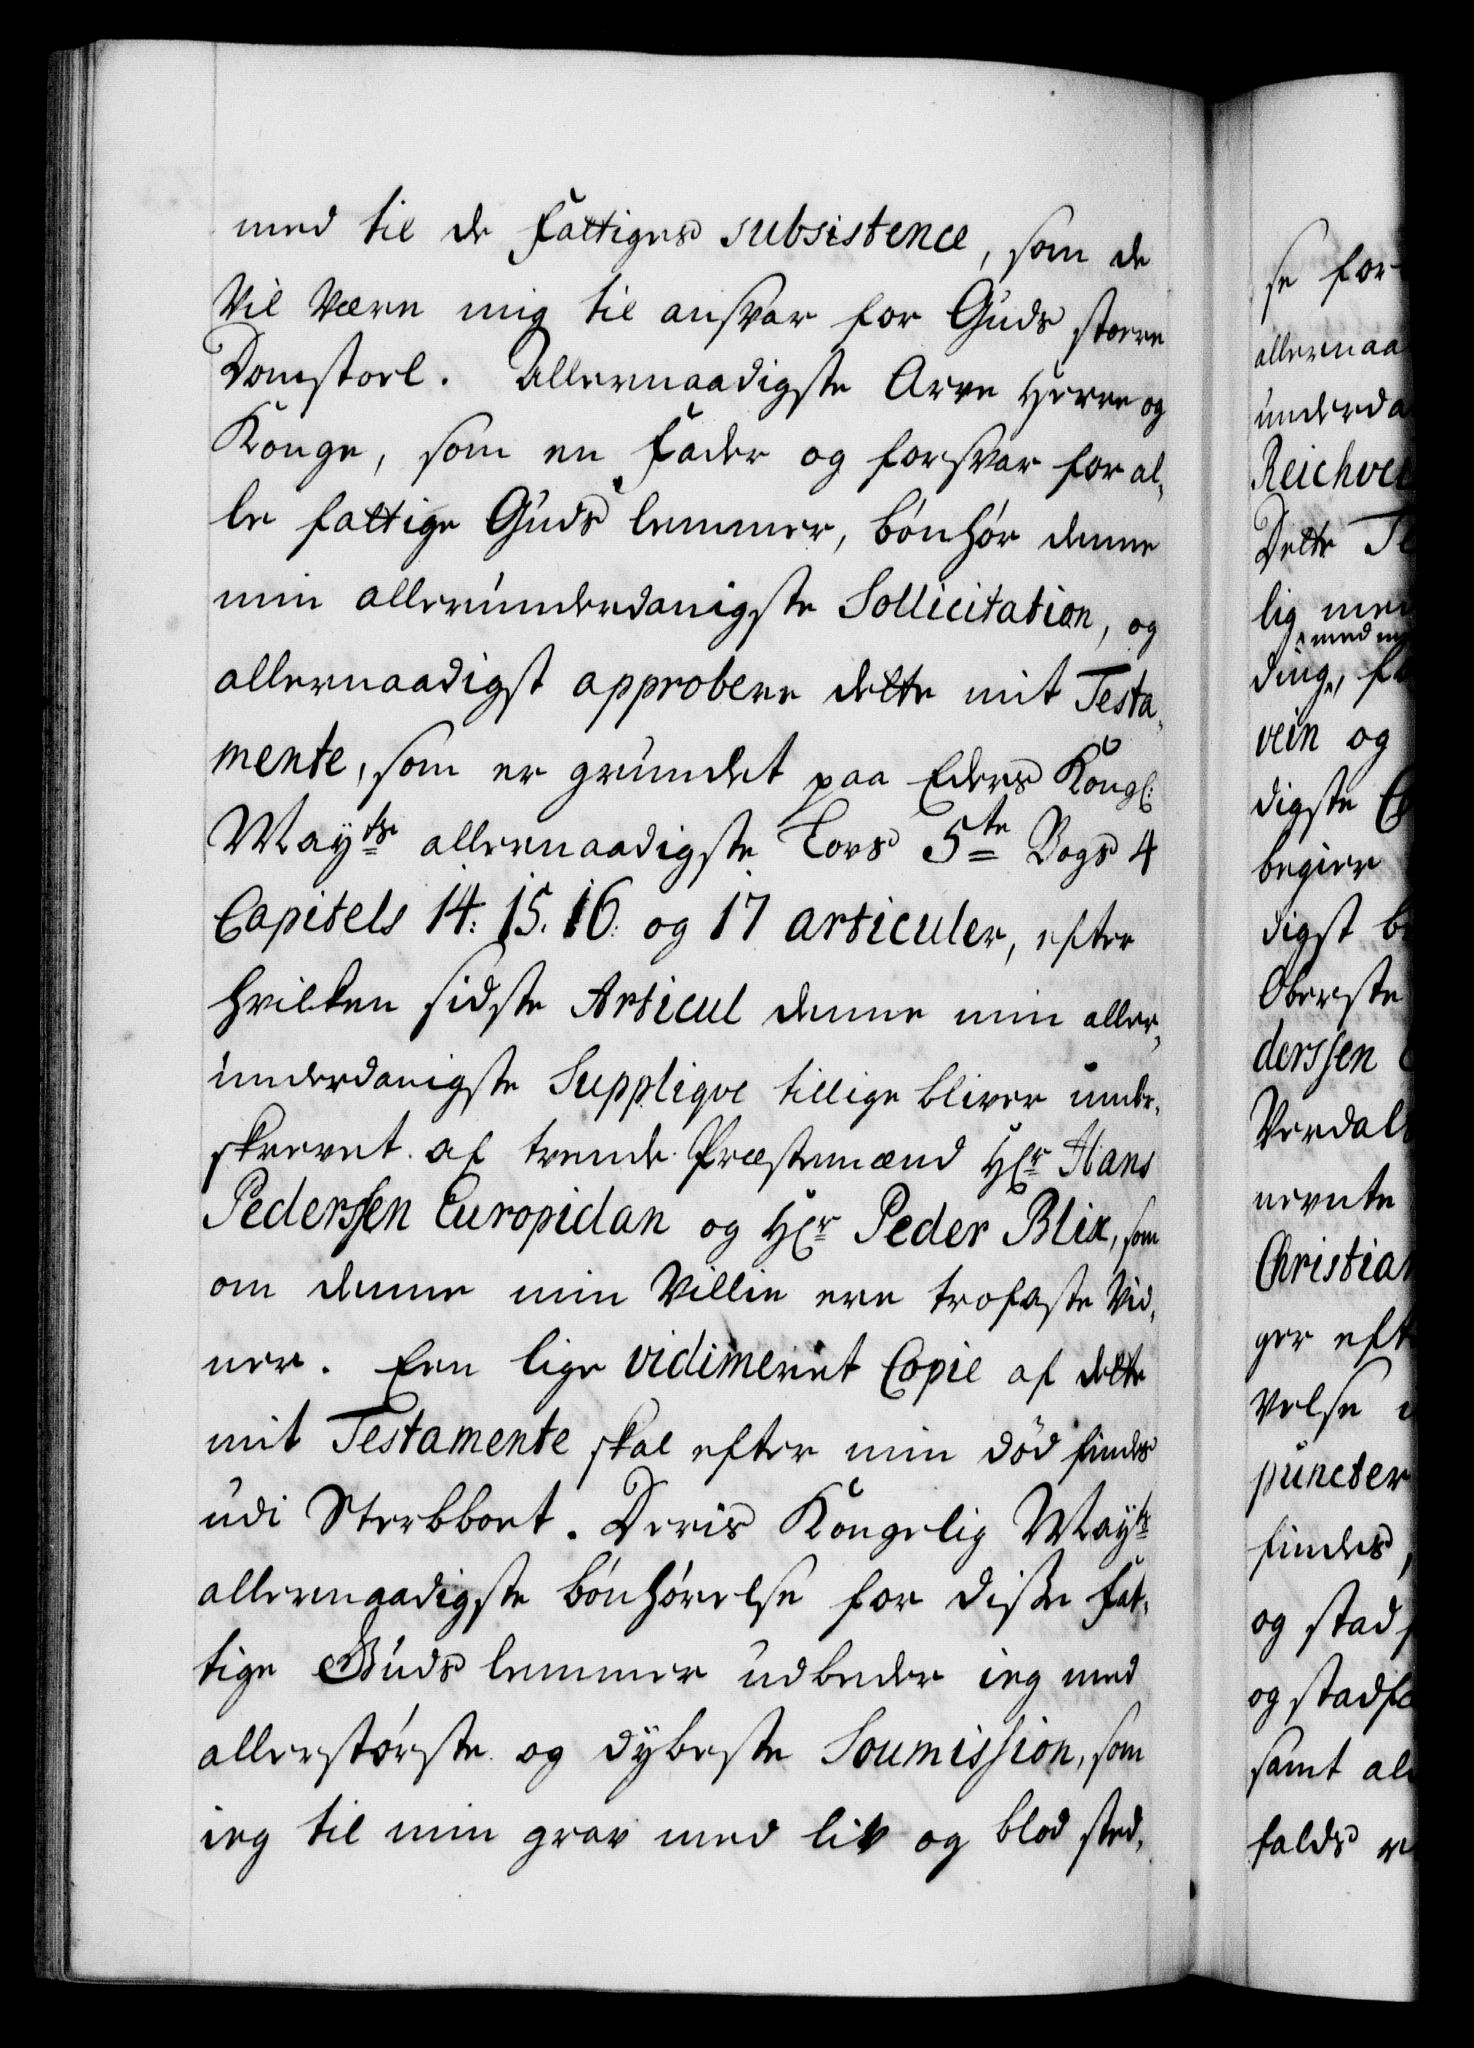 med til de Fattiges subsistence, som de
vil være mig til ansvar for Guds store
Domstoel. Allernaadigste Arve Herre og
Konge, som en Fader og forsvar for al-
le fattige Guds lemmer, bönhör denne
min allerunderdanigste Sollicitation, og
allernaadigst approbere dette mit Testa-
mente, som er grundet paa Eders Kongl:
Mayts allernaadigste Lovs 5te Bogs 4
Capitels 14: 15. 16: og 17 articuler, efter
hvilken sidste Articul denne min aller-
underdanigste Supplique tillige bliver under-
skrevet af tvende Præstemænd Hr Hans
Pederssen Europidan og Hr Peder Blix, som
om denne min Villie ere trofaste Vid-
ner. Een lige vidimeret Copie af dette
mit Testamente skal efter min död findes
udi Sterbboet. Deris Kongelig Mayts
allernaadigste bönhörelse for disse Fat-
tige Guds lemmer udbeder ieg med
allerstörste og dybeste Soumission, som
ieg til min grav med liv og blod sted-
se for
allernaa
underda
Reichvei
Dette Te
lig men
med
ding, fo
vein og
digste
begier
digst b
Oberste
derssen
Verdal
nevnte
Christian
ger eft
velse
puncter
findes,
og stadf
og stadfæ
samt al
falds